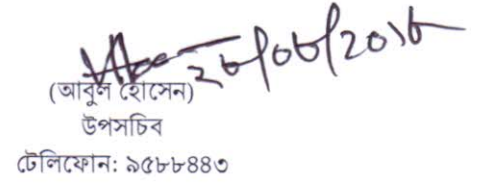 ২৮/০৮/২০১৮
(আবুল হোসেন)
উপসচিব
টেলিফোন: ৯৫৮৮৪৪৩